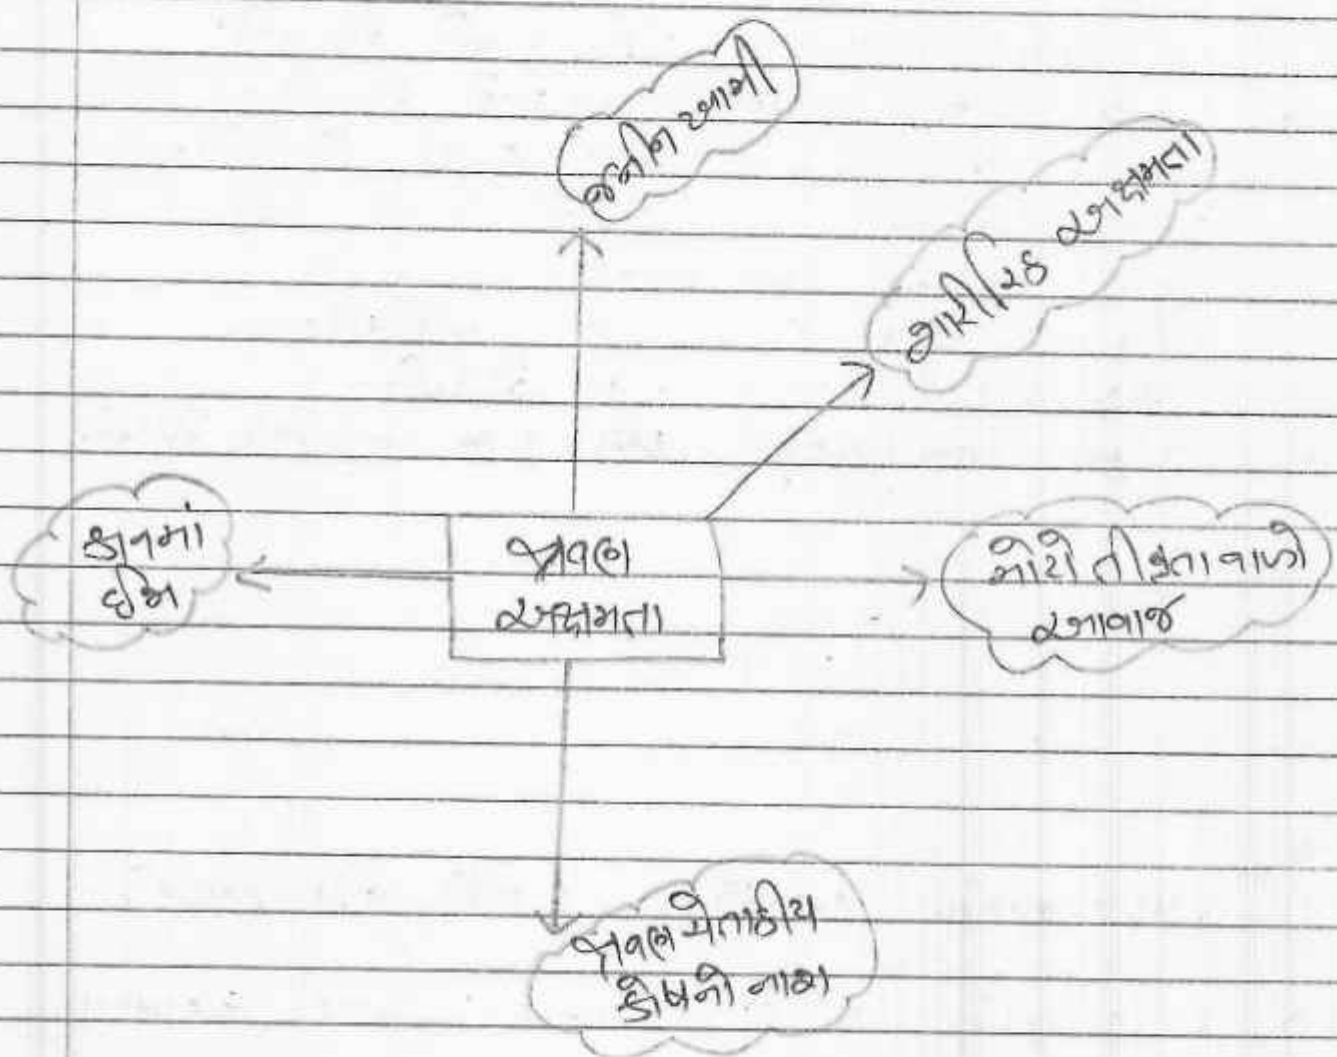 જનીન ખામી
શારીરિક અક્ષમતા
કાનમાં
ઈજા
શ્રવણ
અક્ષમતા
મોટો તીવ્રતા વાળો
અવાજ
શ્રવણ ચેતાકીય
કોષનો નાશ